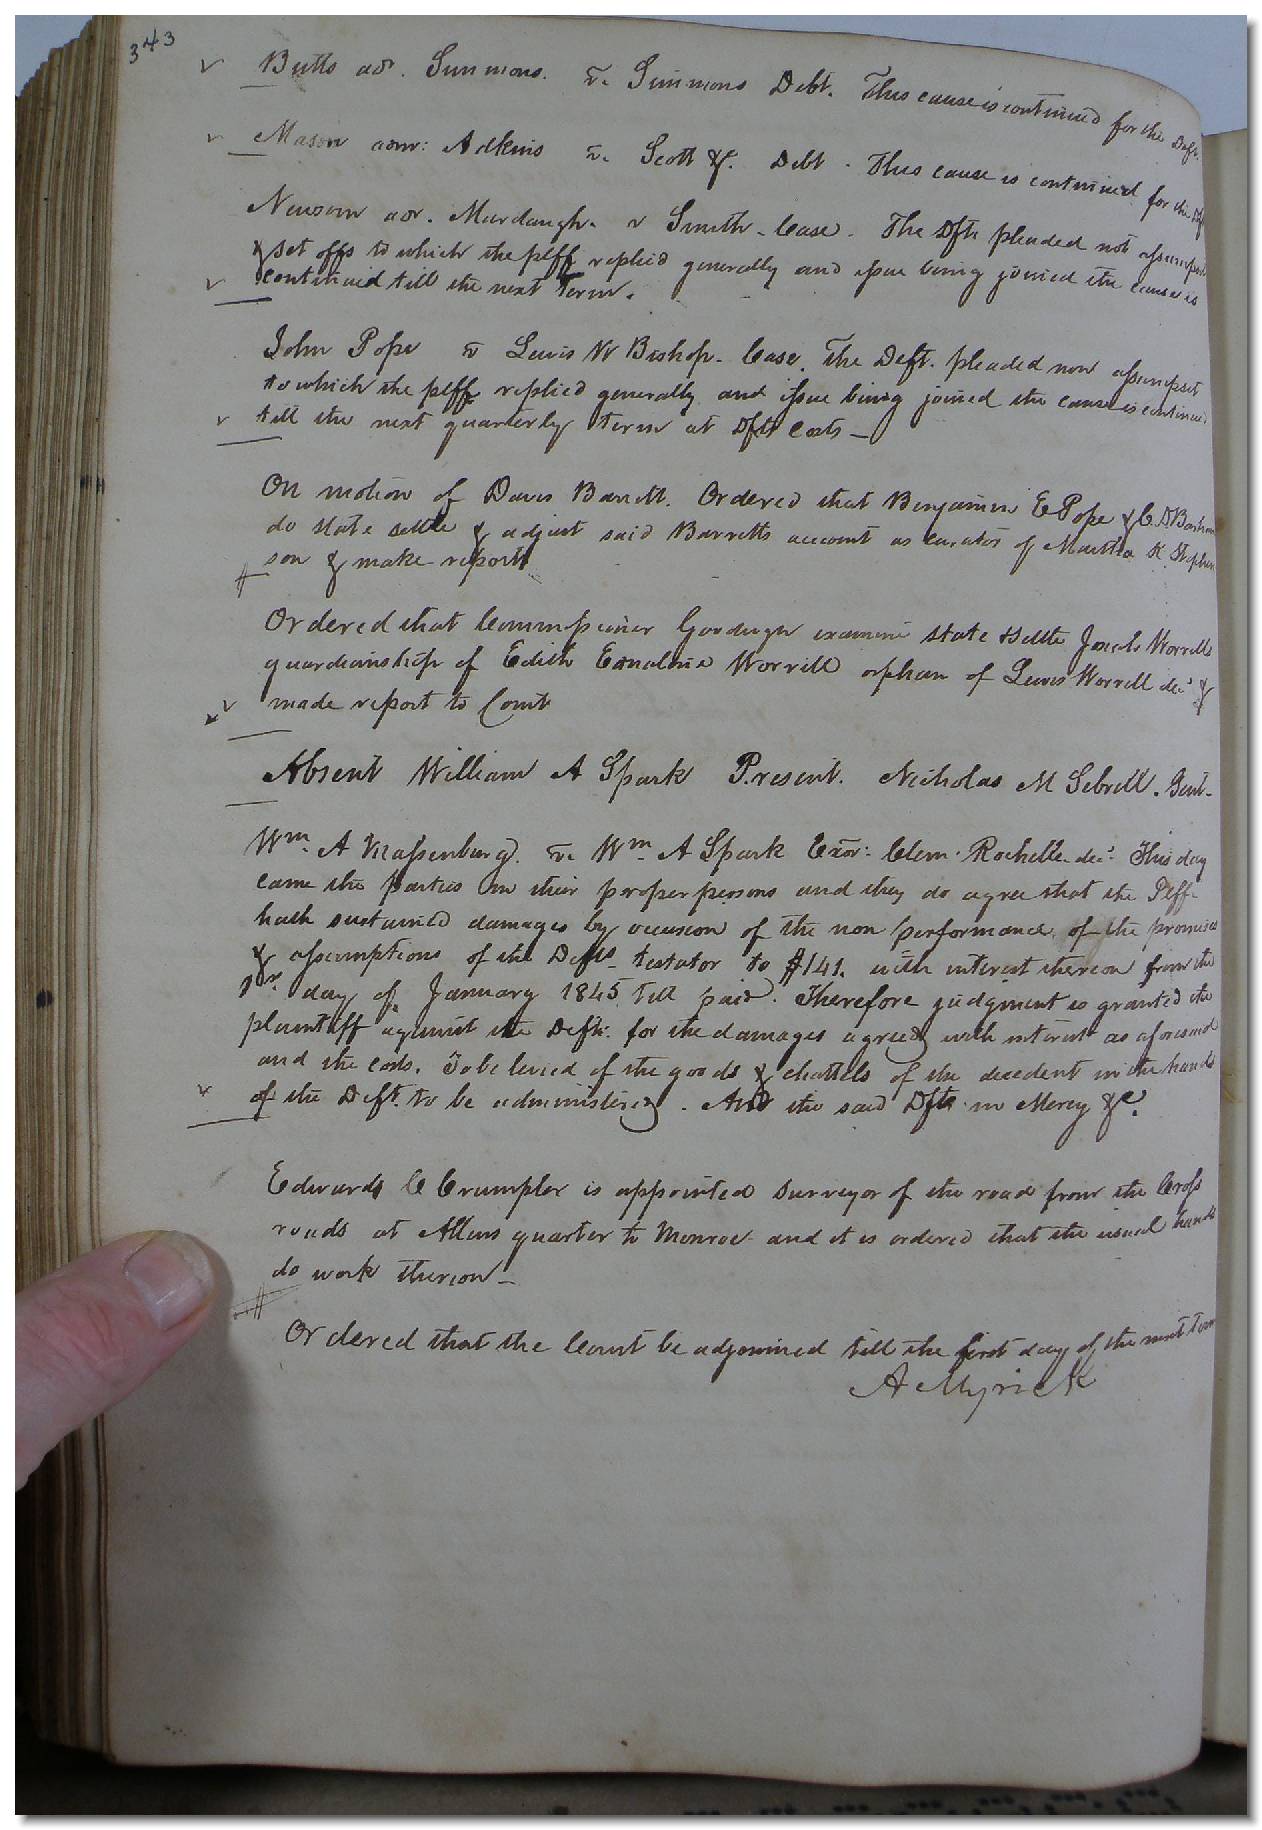 343
Butts ads. Simmons. vs. Simmons Debt. This cause is continued for the Deft.
Mason admr: Adkins vs. Scott &. Debt. This cause is continued for the Dft
Newsom adr. Murdaugh. v Smith - Case. The Dfts pleaded not assumpsit
& set offs to which the plff replied generally and issue being joined the cause is
continued till the next Term.
John Pope vs Lewis W Bishop - Case. The Deft. pleaded non assumpsit
to which the plff replied generally and issue being joined the cause is continued
till the next quarterly Term at Dfts Costs -
On motion of Davis Barrett. Ordered that Benjamin E Pope & C. D Barham
do state settle & adjust said Barretts account as curator of Martha K. Stephen
son & make report
Ordered that Commissioner Goodwyn examine state & settle Jacob Worrells
guardianship of Edith Emaline Worrill orphan of Lewis Worrell decd &
made report to Court
Absent William A Spark Present. Nicholas M Sebrell. Gent-
Wm. A Massenburg. vs. Wm. A Spark Exor: Clem. Rochelle decd. This day
came the parties in their proper persons and they do agree that the Plff.
hath sustained damages by occasion of the non performance of the promises
& assumptions of the Defts testator to $141. with interest thereon from the
1st day of January 1845 Till paid. Therefore judgment is granted the
plaintiff against the Deft. for the damages agreed with interest as aforesaid
and the costs. To be levied of the goods & chattels of the decedent in the hands
of the Deft. to be administered. And the said Dft in Mercy &c.
Edwards C Crumpler is appointed surveyor of the road from the Cross
roads at Allens quarter to Monroe and it is ordered that the usual hands
do work thereon -
Ordered that the Court be adjourned till the first day of the next Term
A Myrick